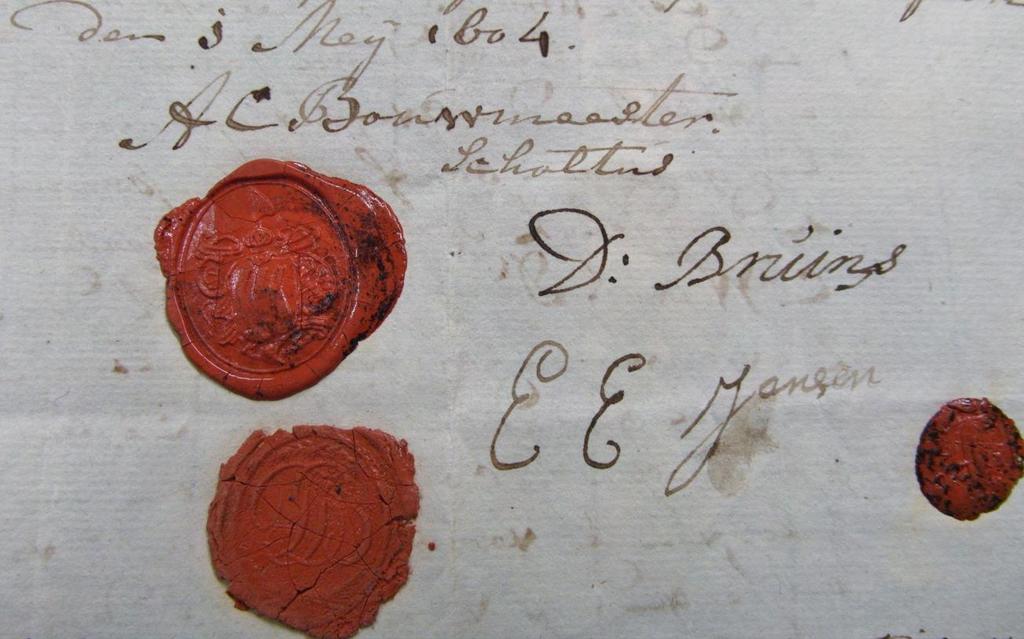 den 5 Meÿ 1804.
A C Bouwmeester.
Scholtus
D: Bruins
E E Jansen